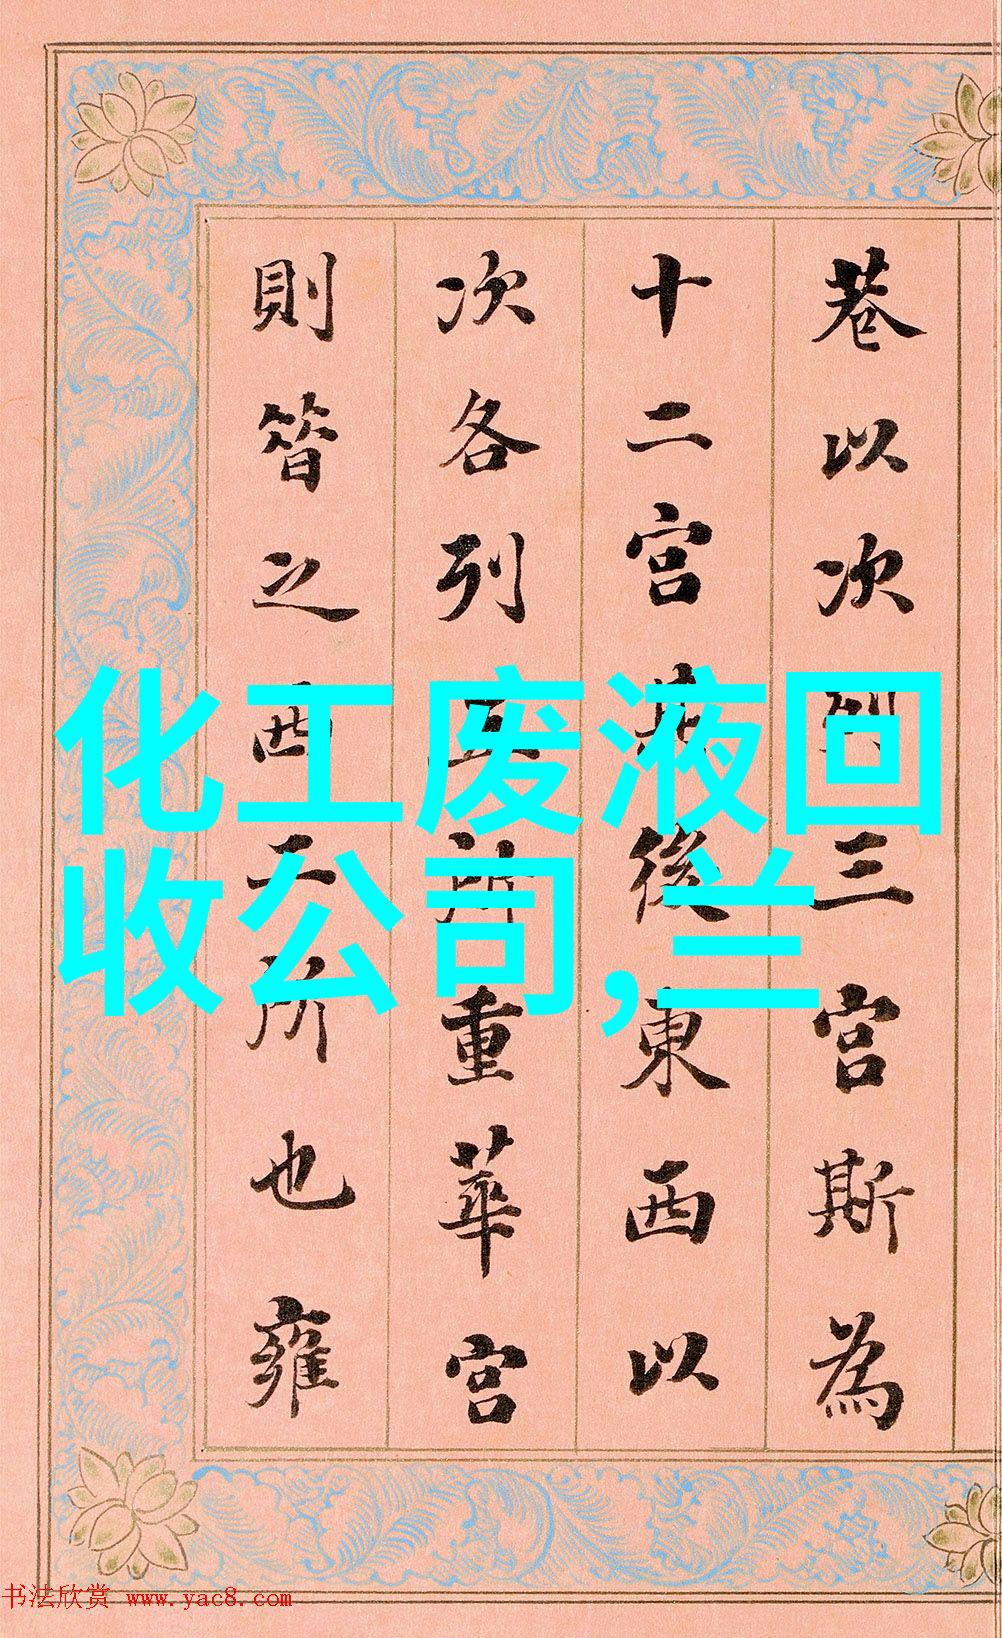 巷以次列三宮斯為
十二宮其後東西以
次各列五所重華宮
則皆之西二所也雍
化工废液回
收公司,兰
书法欣赏 www.yac8.com